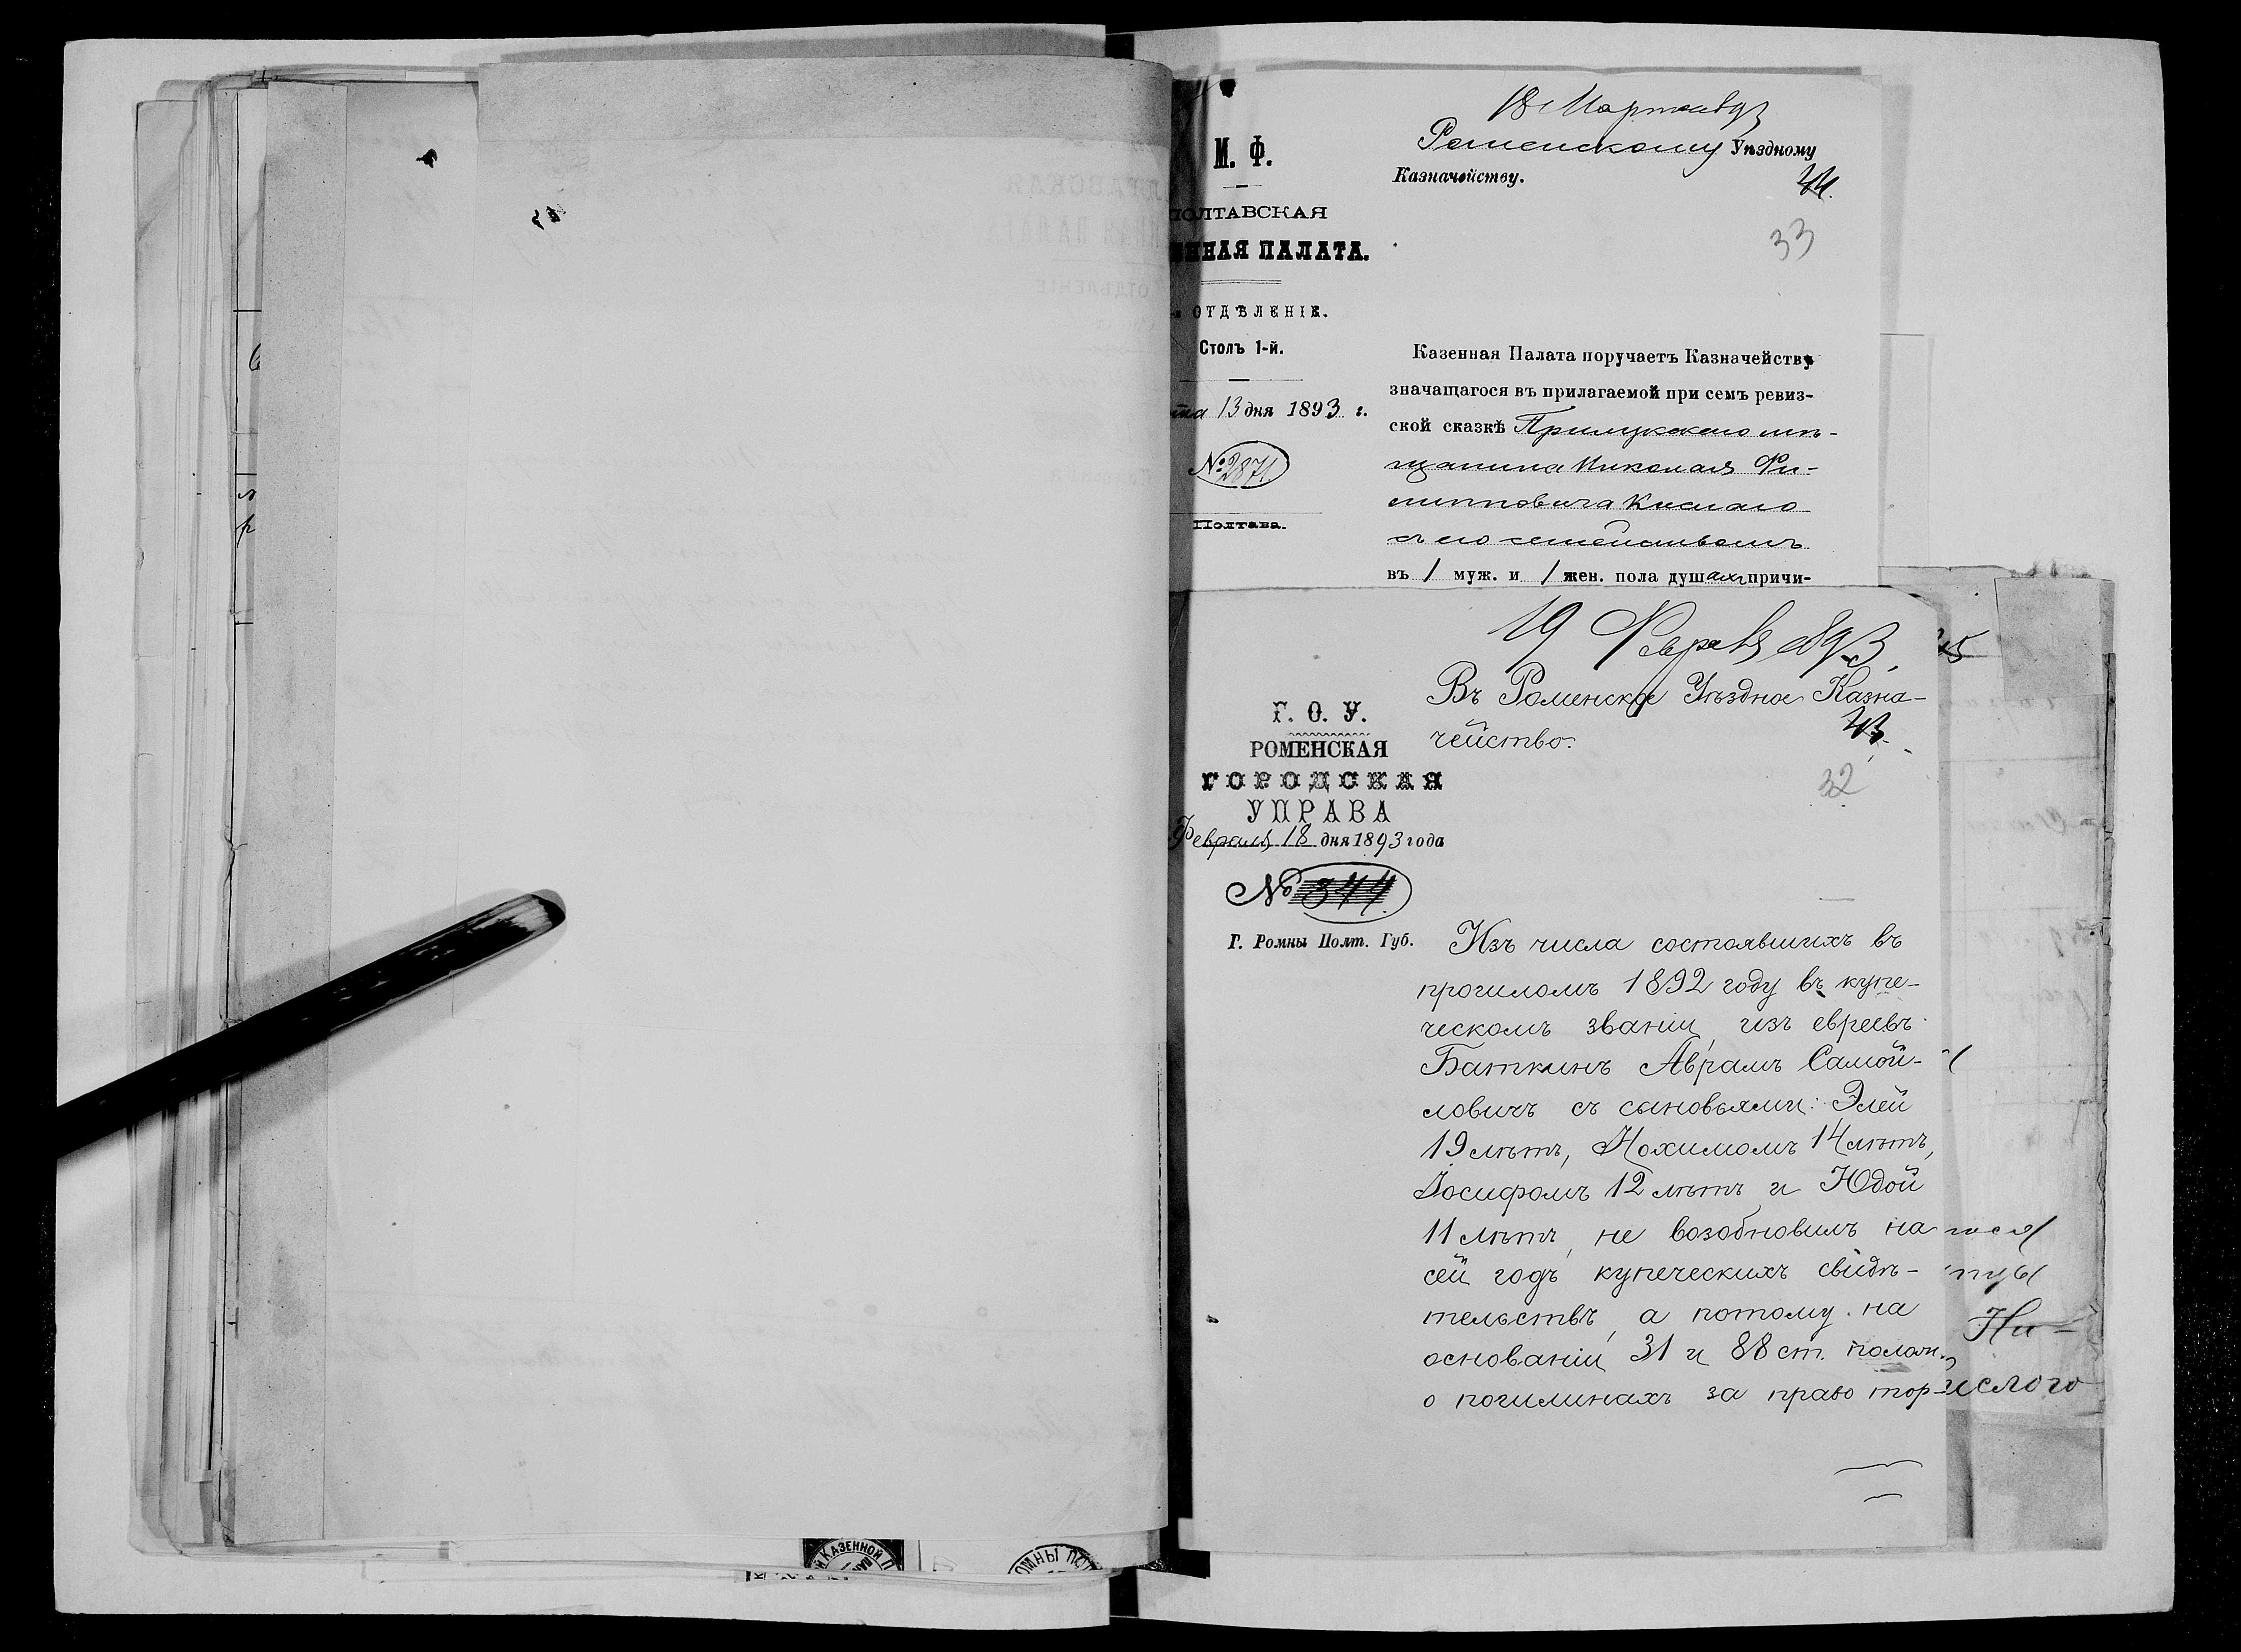 18 Марта 93
М. Ф.
ПОЛТАВСКАЯ
ЕННАЯ ПАЛАТА.
ОТДѢЛЕНІЕ.
Столъ 1-й.
та 13 дня 1893 г.
№ 2871
Полтава.
Роменскому Уѣздному
Казначейству.
44.
33
Казенная Палата поручаетъ Казначейству
значащагося въ прилагаемой при семъ ревиз-
ской сказкѣ Прилукскаго мѣ-
щанина Николая Фи-
липповича Кислаго
съ его семействомъ
въ 1 муж. и 1 жен. пола душахъ причи-
19 Февраля 1893.
Г. О. У.
РОМЕНСКАЯ
ГОРОДСКАЯ
УПРАВА
Февраля 18 дня 1893 года
№ 344.
Г. Ромны Полт. Губ.
Въ Роменское Уѣздное Казна-
чейство.
43.
32
Изъ числа состоявшихъ въ
прошломъ 1892 году въ купе-
ческомъ званіи, изъ евреевъ
Баткинъ Аврамъ Самой-
ловичъ съ сыновьями: Элей
19 лѣтъ, Нохимомъ 14 лѣтъ,
Іосифомъ 12 лѣтъ и Юдой
11 лѣтъ, не возобновилъ на
сей годъ купеческихъ свидѣ-
тельствъ, а потому на
основаніи 31 и 88 ст. полож.
о пошлинахъ за право тор-
45
Ни-
ислого
КАЗЕННОЙ
РОМНЫ ПОЛ